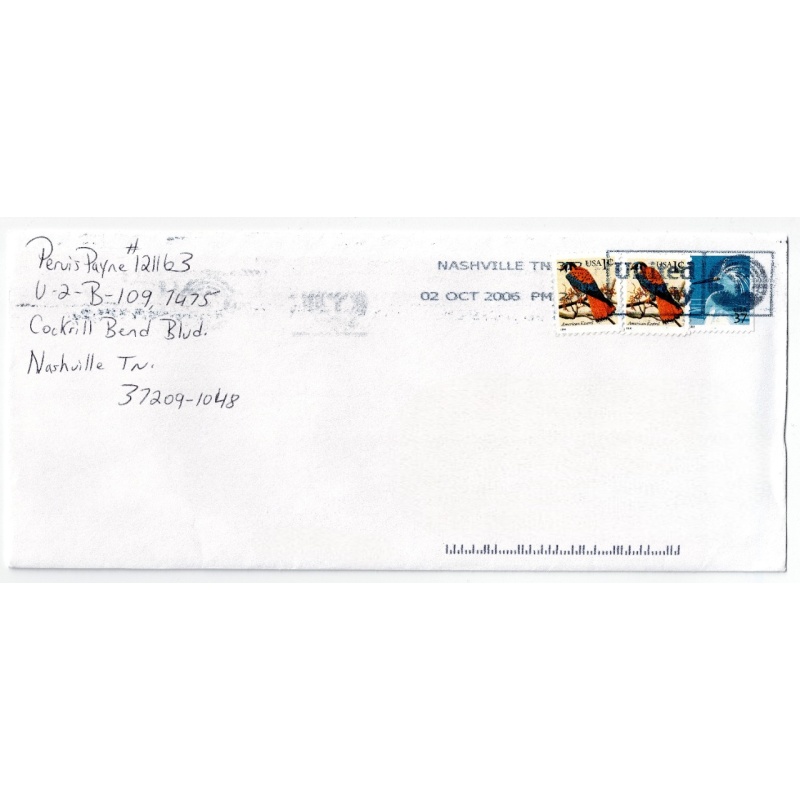 Pervis Payne #121163
U-2-B-109, 7475
Cockrill Bend Blvd.
Nashville TN.
37209-1048
NASHVILLE TN
02 OCT 2006 PM
USA 1c
American Kestrel
USA 1c
American Kestrel
37